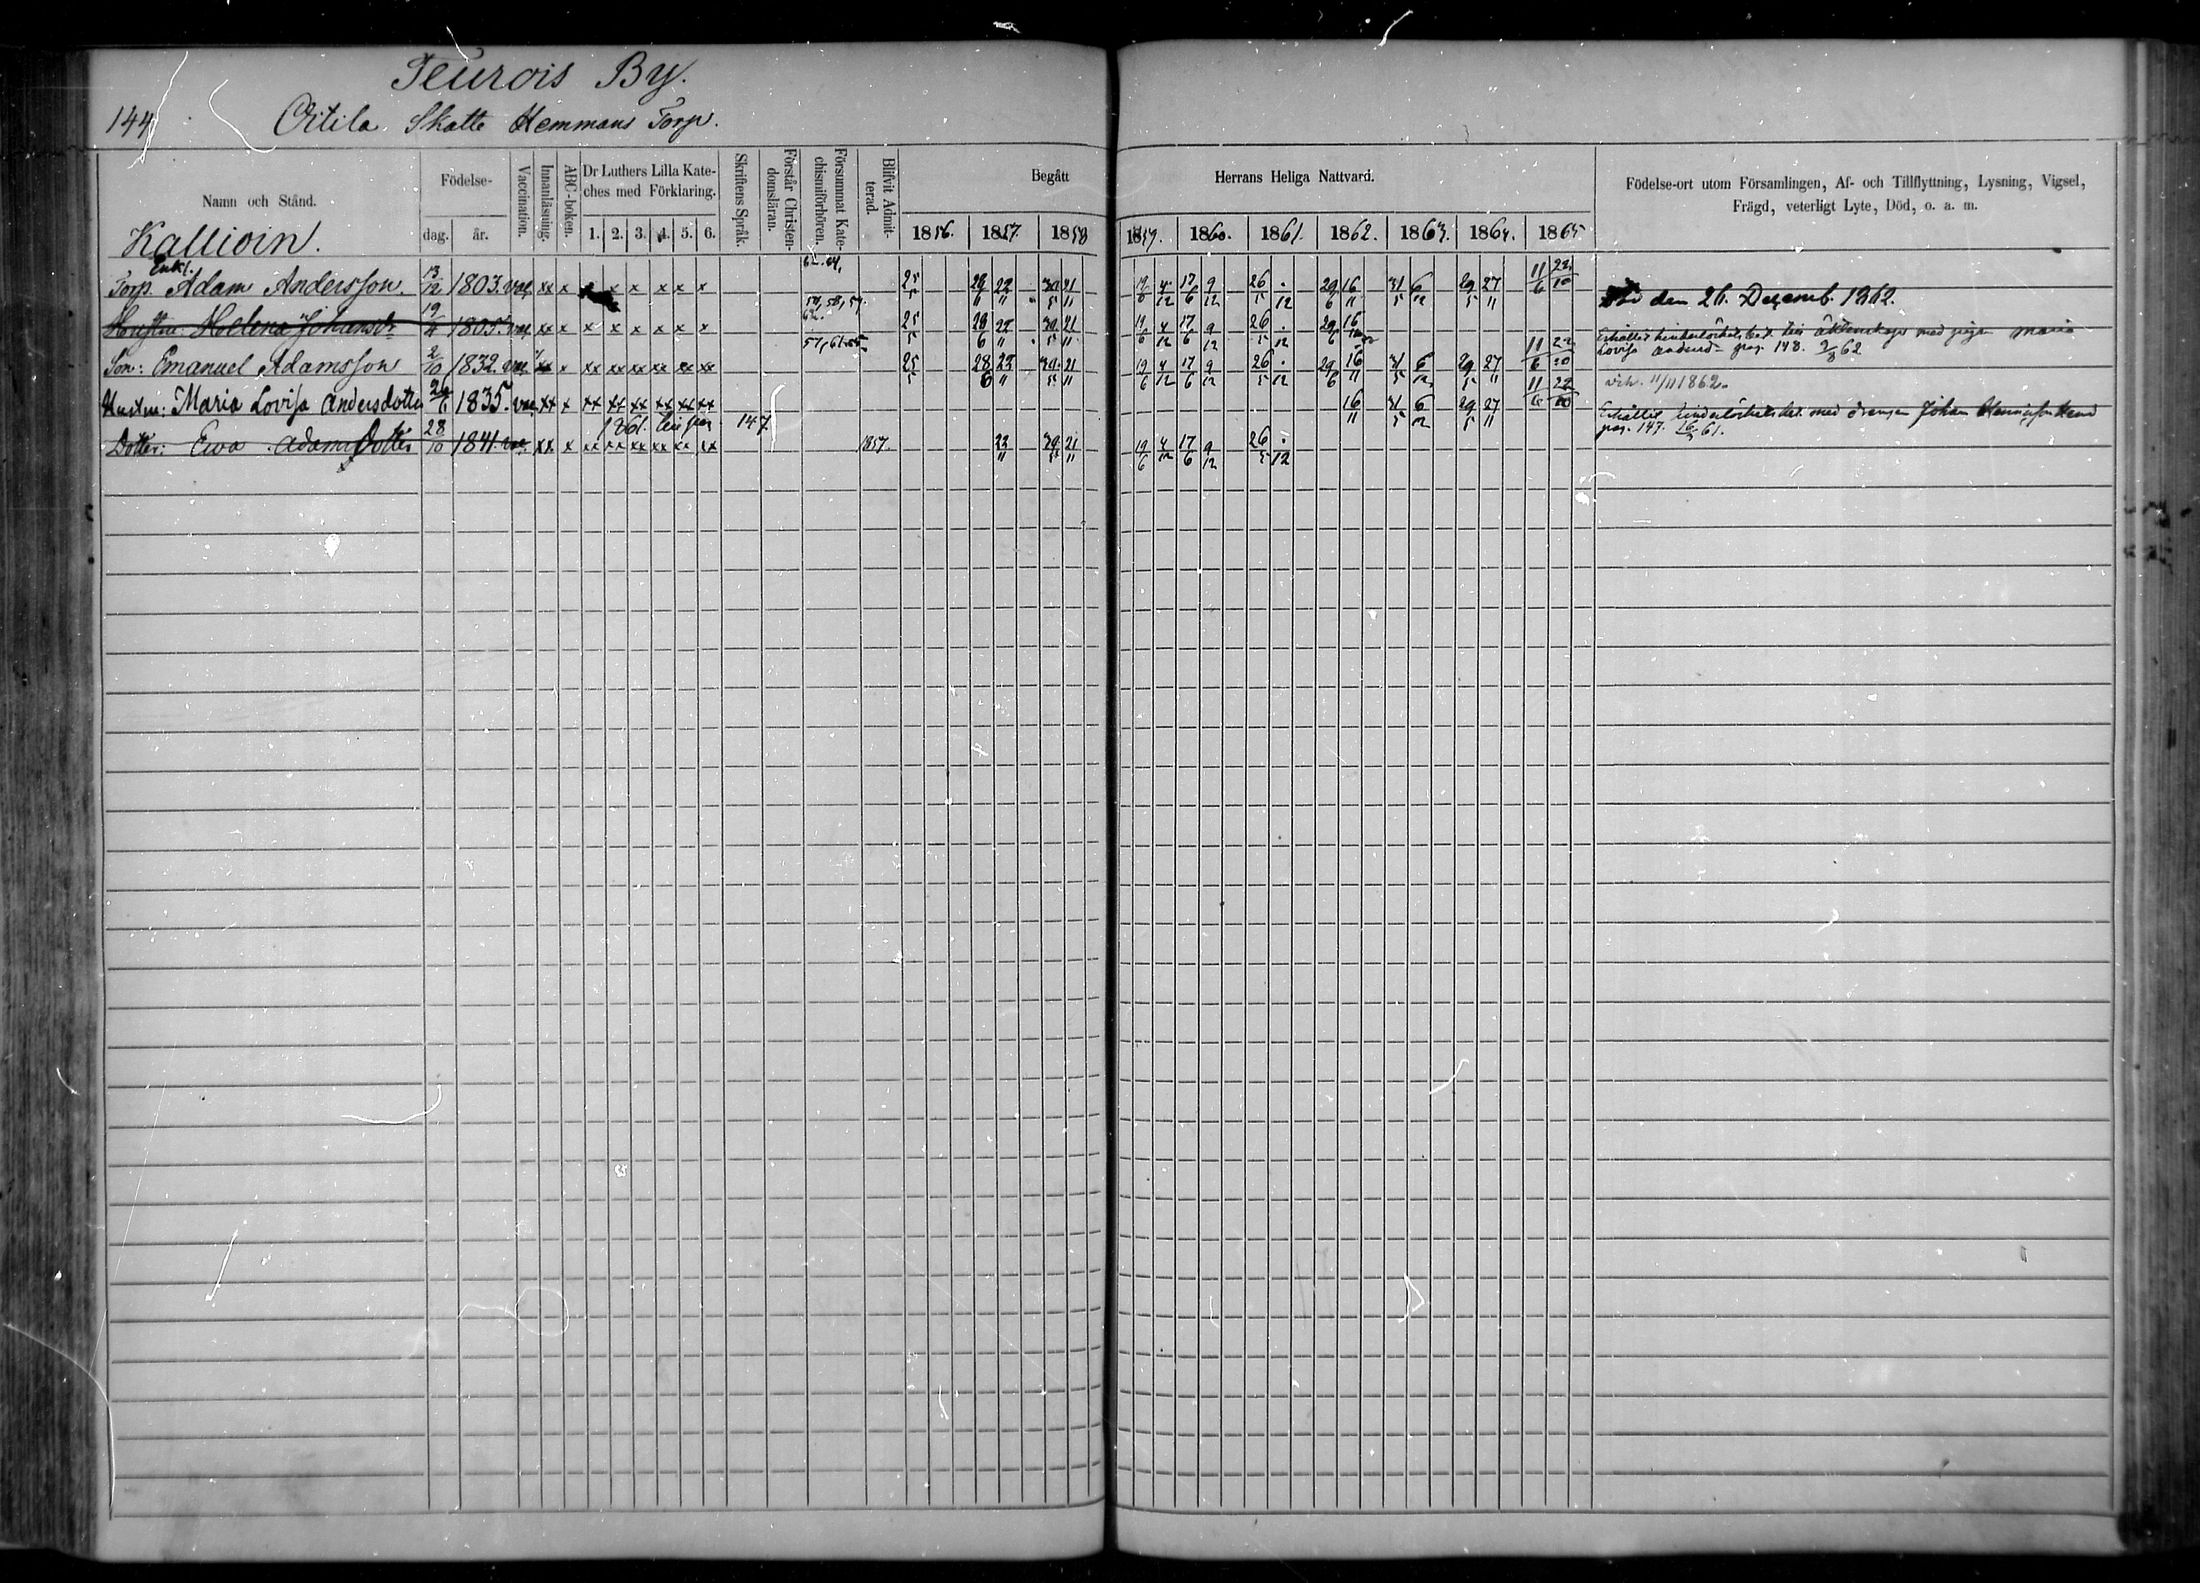 Teurois By.
144 Skatte Hemmans Torp.
Namn och Stånd.
Födelse-
dag. år.
Vaccination.
Innanläsning.
ABC-boken.
Dr Luthers Lilla Kate-
ches med Förklaring.
1. 2. 3. 4. 5. 6.
Skriftens Språk.
Förstår Christen-
domsläran.
Försummat Kate-
chismiförhören.
Blifvit Admit-
terad.
Begått Herrans Heliga Nattvard.
1856. 1857. 1858 1859. 1860. 1861. 1862. 1863. 1864. 1865
Födelse-ort utom Församlingen, Af- och Tillflyttning, Lysning, Vigsel,
Frägd, veterligt Lyte, Död, o. a. m.
Kallioin.
Enkl.
Torp. Adam Andersson. 13/12 1803. vac. xx x x x x x x 25/5 28/6 22/11 30/5 21/11 19/6 4/12 17/6 9/12 26/5 12 29/6 16/11 31/5 6/12 29/5 27/11 11/6 22/10
Hustru Hellena Johansdr 19/4 1805. vac. xx x x x x x x x 25/5 28/6 22/11 30/5 21/11 19/6 4/12 17/6 9/12 26/5 12 29/6 16 den 26. Decemb. 1862.
Son: Emanuel Adamsson 2/10 1832. vac. xx x xx xx xx xx xx xx 25/5 28/6 22/11 30/5 21/11 19/6 4/12 17/6 9/12 26/5 12 29/6 16/11 31/5 6/12 29/5 27/11 11/6 22/10 med pigan Maria
Lovisa pag. 148. 62
Hustru: Maria Lovisa Andersdotter 26/6 1835. vac. xx x xx xx xx xx xx xx 16/11 31/5 6/12 29/5 27/11 11/6 22/10 11/11 1862.
1861. till pag. 147
Dotter: Ewa Adamsdotter 28/10 1841. vac. xx x xx xx xx xx xx xx 1857. 22/11 30/5 21/11 19/6 4/12 17/6 9/12 26/5 12 Erhållit med drengen Johan
pag. 147. 61.